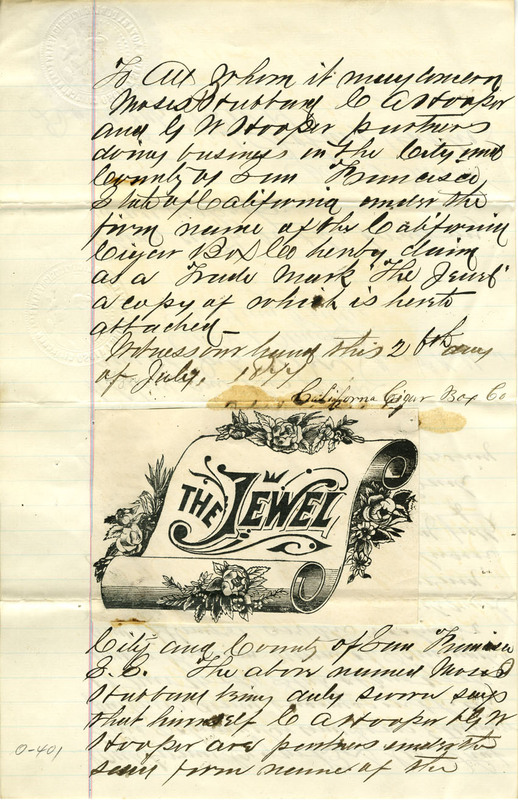 To All whom it may concern
Moses Hubbard C A Hooper
and G W Hooper partners
doing business in the City and
County of San Francisco
State of California under the
firm name of the California
Cigar Box Co hereby claim
as a Trade Mark "The Jewel"
a copy of which is hereto
attached—
Witness our hand this 26th day
of July, 1877
California Cigar Box Co
THE JEWEL
City and County of San Francisco
S.S. The above named Moses
Hubbard being duly sworn says
that himself C A Hooper & G W
Hooper are partners under the
said firm name of the
0-401